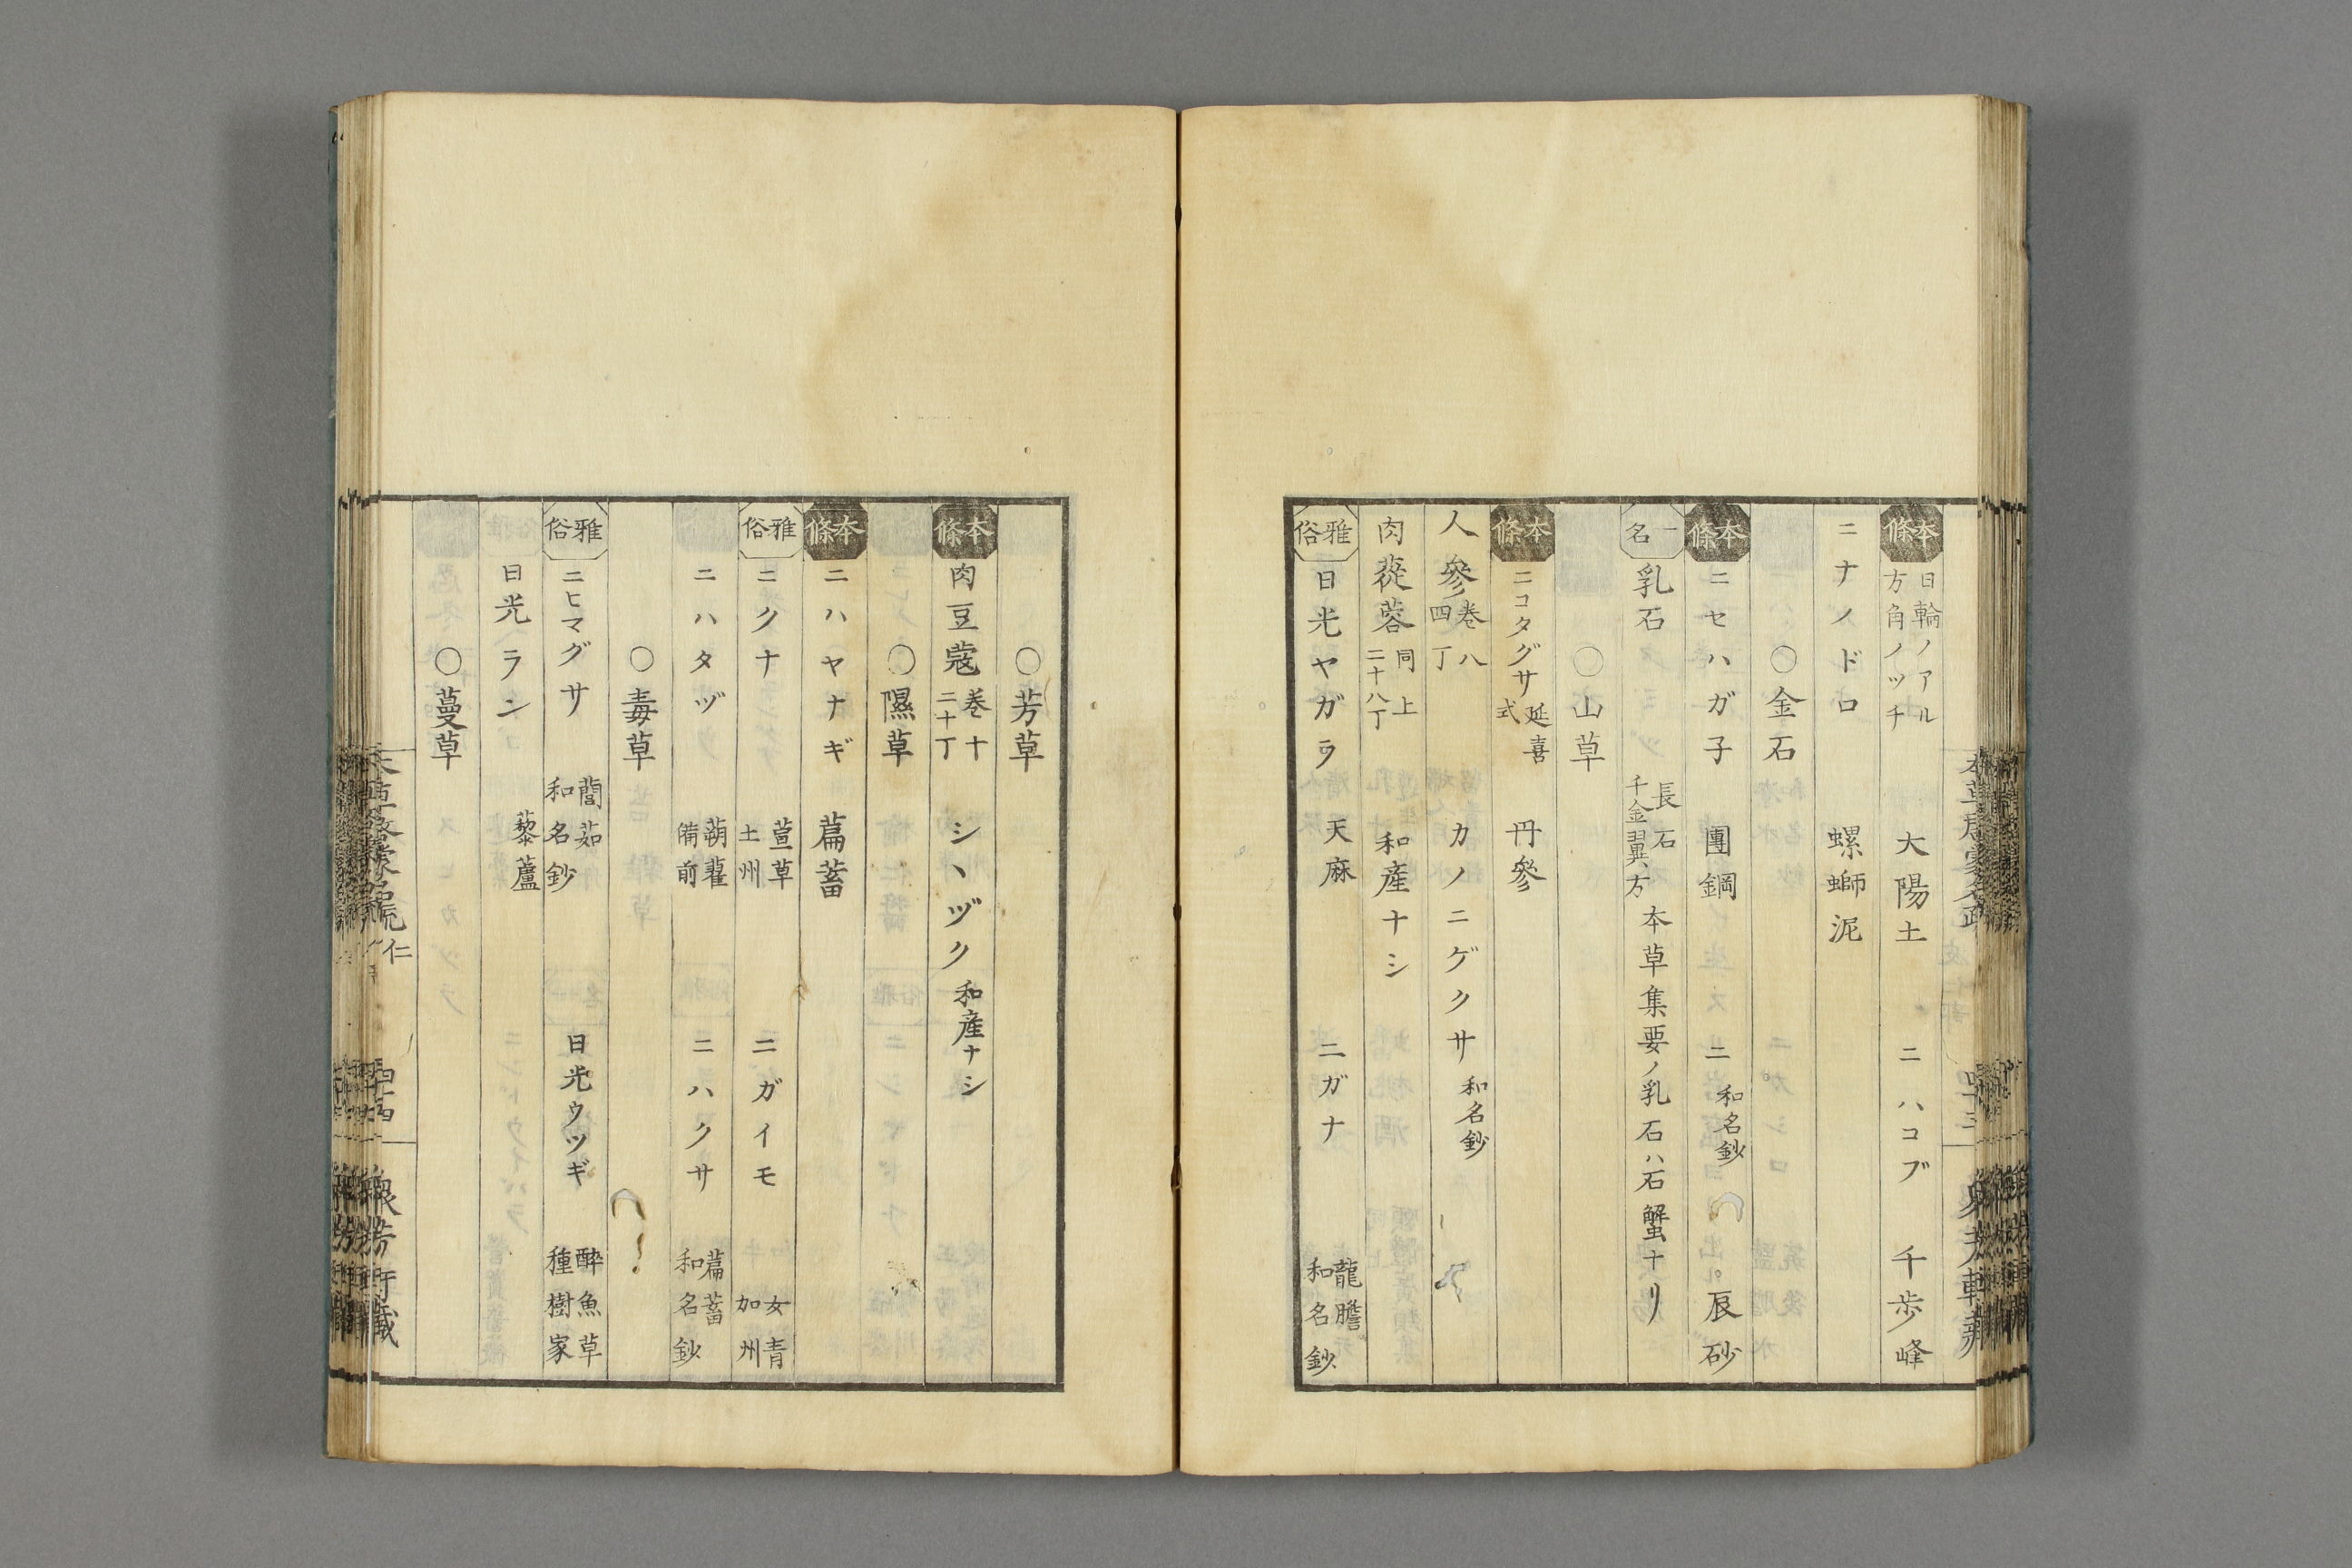 本條 日輪ノアル方角ノツチ 大陽土 ニハコブ 千歩峰
ニナノドロ 螺螄泥
〇金石
本條 ニセハガ子 團鋼 和名鈔 ニ 辰砂
一名 乳石 長石 千金翼方 本草集要ノ乳石ハ石蟹ナリ
〇山草
本條 ニコタグサ 延喜式 丹參
人參 巻八 四丁 カノニゲクサ 和名鈔
肉蓯蓉 同上 二十八丁 和産ナシ
雅俗 日光ヤガラ 天麻 ニガナ 龍膽 和名鈔
〇芳草
本條 肉豆蔻 巻十 二十丁 シヽヅク 和産ナシ
〇隰草
本條 ニハヤナギ 萹蓄
雅俗 ニクナ 萱草 土州 ニガイモ 女青 加州
ニハタヅ 蒴藋 備前 ニハクサ 萹蓄 和名鈔
〇毒草
雅俗 ニヒマグサ 藘茹 和名鈔 日光ウツギ 醉魚草 種樹家
日光ラン 藜蘆
〇蔓草